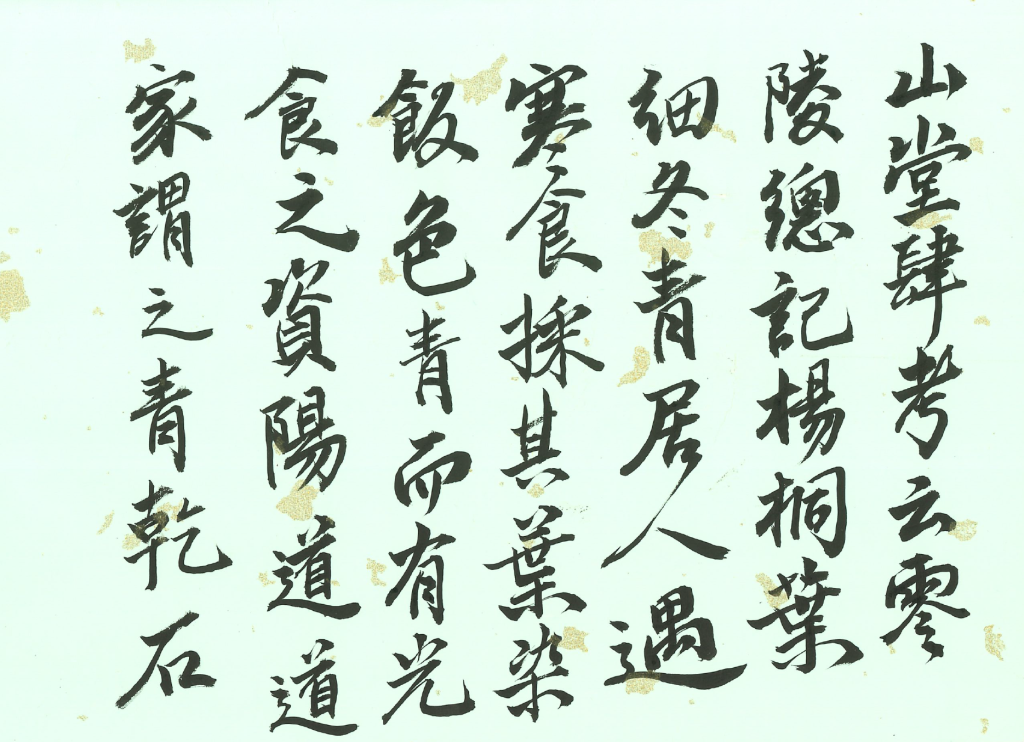 山堂肆考云零
陵總記楊桐葉
細冬青居人遇
寒食採其葉染
飯色青而有光
食之資陽道道
家謂之青乾石